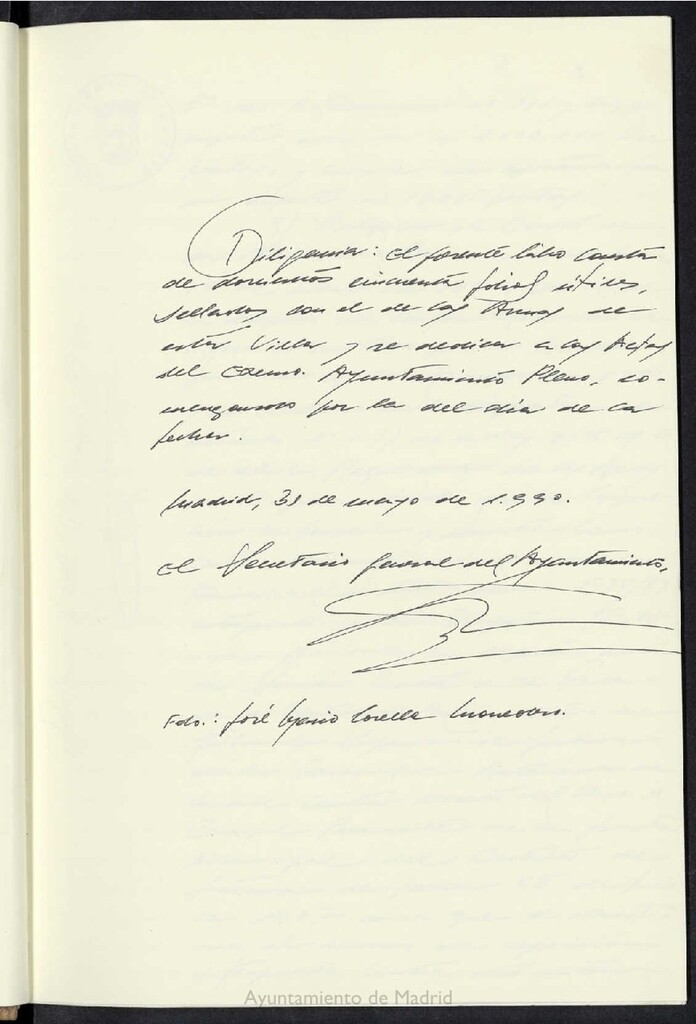 Diligencia: El presente libro consta
de doscientos cincuenta folios útiles,
sellados con el de las Armas de
esta Villa y se dedica a las Actas
del Excmo. Ayuntamiento Pleno, co-
menzando por la del día de la
fecha.
Madrid, 31 de mayo de 1.990.
El Secretario General del Ayuntamiento,
Fdo.: José Mario Corella Monedero.
Ayuntamiento de Madrid